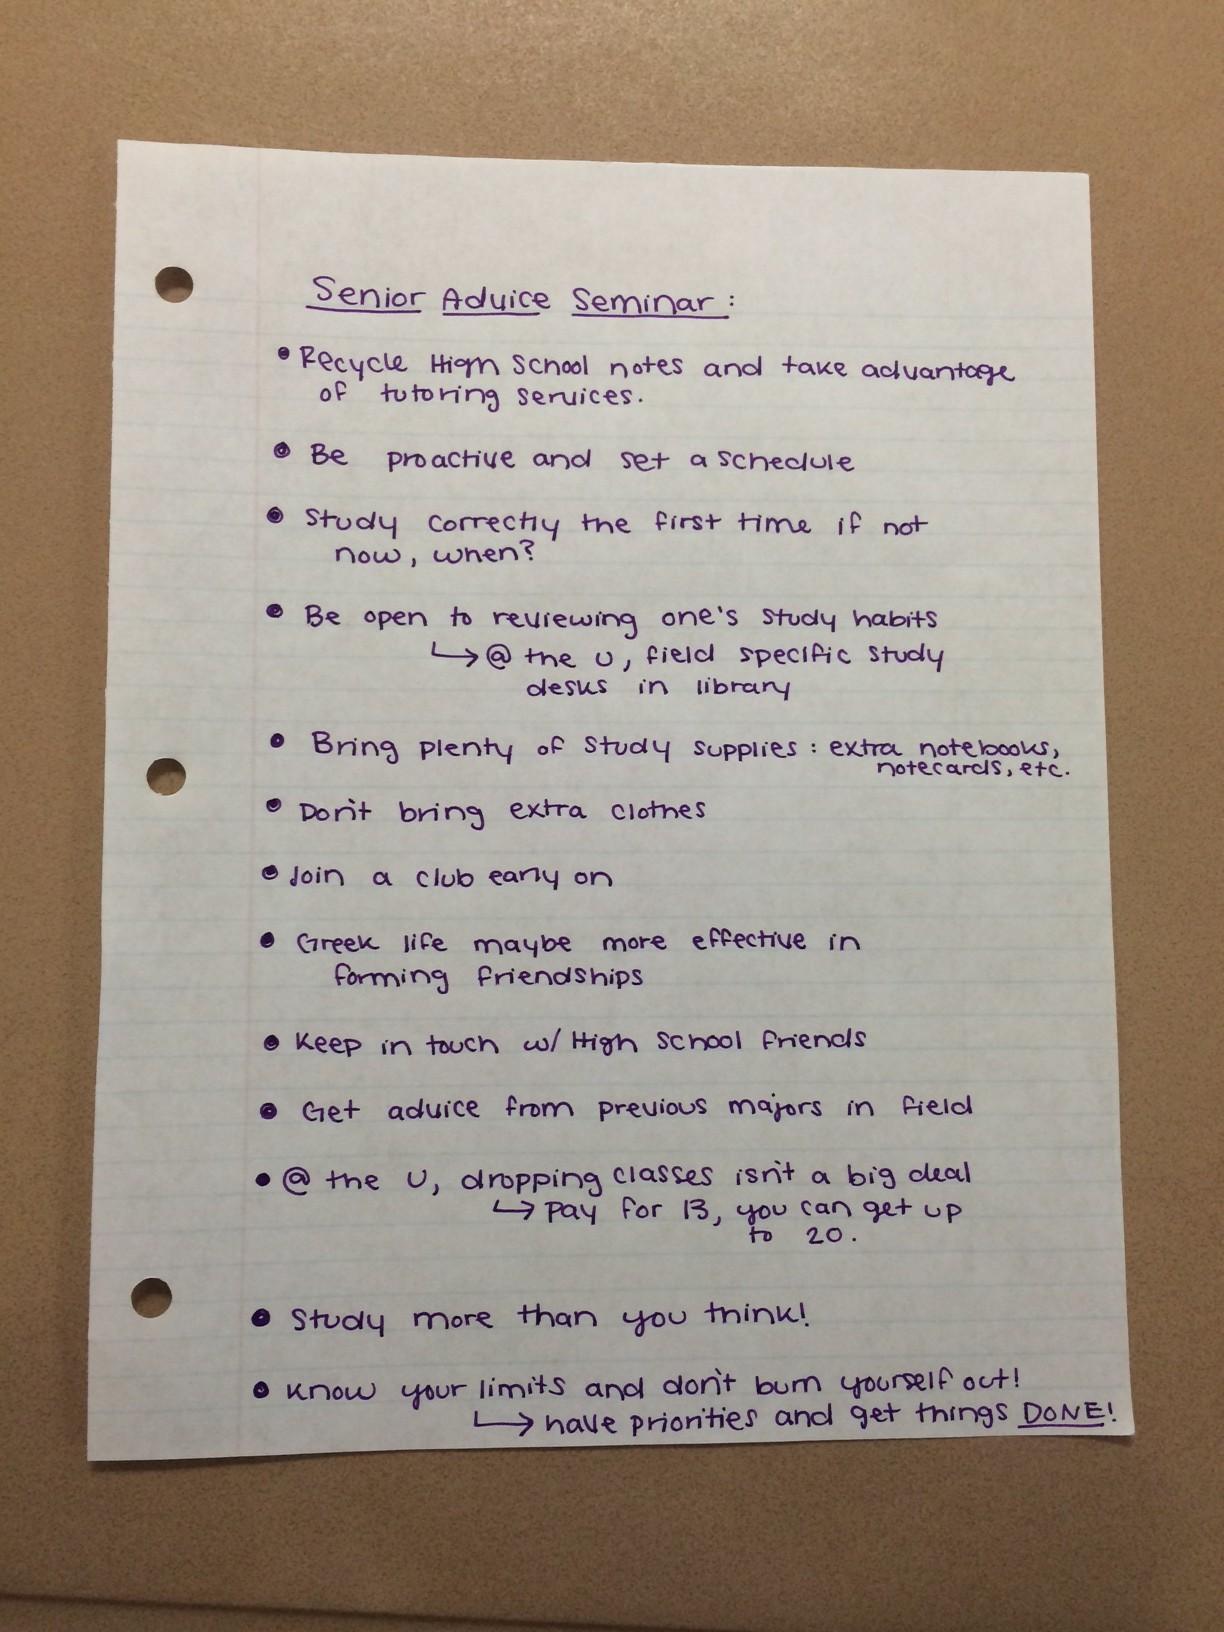 Senior Advice Seminar:
• Recycle High School notes and take advantage
of tutoring services.
• Be proactive and set a schedule
• Study correctly the first time if not
now, when?
• Be open to reviewing one's study habits
↳ @ the U, field specific study
desks in library
• Bring plenty of study supplies: extra notebooks,
notecards, etc.
• Don't bring extra clothes
• Join a club early on
• Greek life maybe more effective in
forming friendships
• Keep in touch w/ High School friends
• Get advice from previous majors in field
• @ the U, dropping classes isn't a big deal
↳ pay for 13, you can get up
to 20.
• Study more than you think!
• Know your limits and don't burn yourself out!
↳ have priorities and get things DONE!